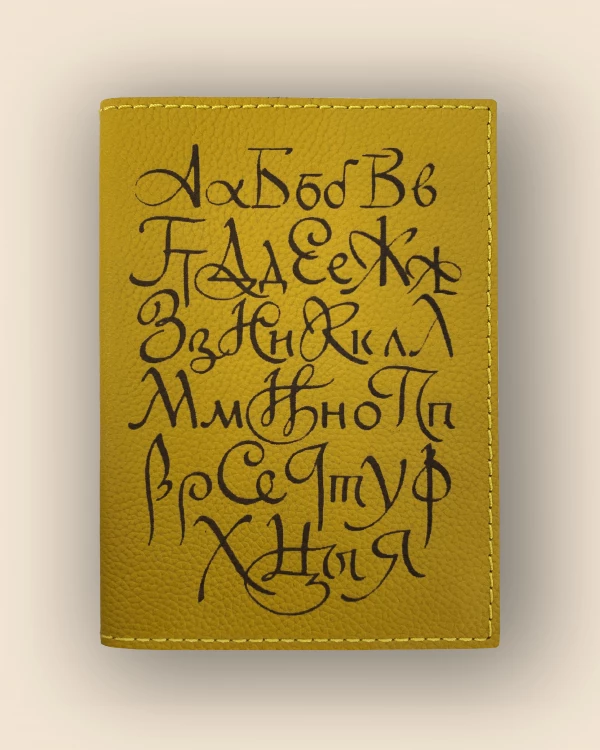 АаБбб Вв
ГгДдЕеЖж
ЗзИиКклЛ
МмНноПп
РрСеЧтуф
ХЦыЯ